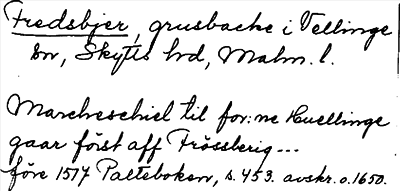 Fredsbjer, grusbacke i Vellinge
sn, Skytts hd, Malm. l.
Marcheschiel til for:ne Huellinge
gaar först aff Frössberig...
före 1517 Palteboken, s. 453. avskr. o. 1650.